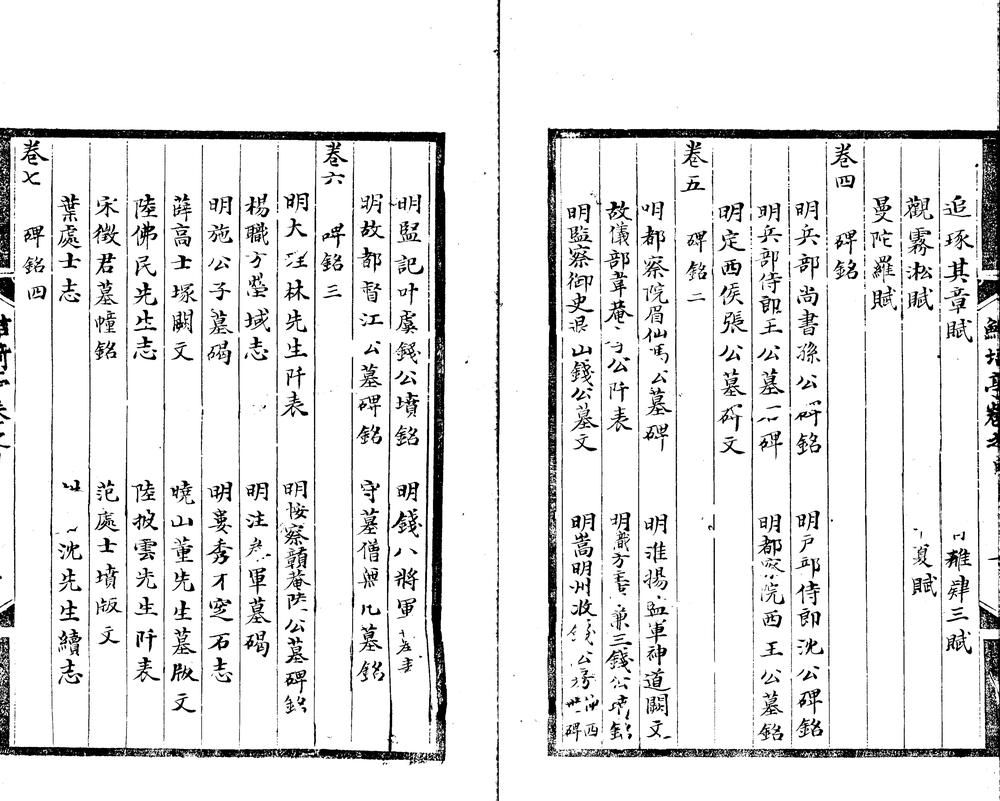 追琢其章賦 雅肄三賦
觀霧淞賦 夏賦
曼陀羅賦
卷四 碑銘
明兵部尚書孫公碑銘 明戶部侍郎沈公碑銘
明兵部侍郎王公墓碑 明都察院西王公墓銘
明定西侯張公墓碑文
卷五 碑銘二
明都察院眉仙馮公墓碑 明淮揚監軍神道闕文
故儀部韋菴公阡表 明職方 兼三錢公墳銘
明監察御史退山錢公墓文 明嵩明州牧錢公 西 碑
明監記叶虞錢公墳銘 明錢八將軍
明故都督江公墓碑銘 守墓僧 几墓銘
卷六 碑銘三
明大 林先生阡表 明按察贛菴陸公墓碑銘
楊職方塋域志 明注參軍墓碣
明施公子墓碣 明婁秀才窆石志
薛高士塚闕文 曉山董先生墓版文
陸佛民先生志 陸披雲先生阡表
宋徵君墓幢銘 范處士墳版文
葉處士志 沈先生續志
卷七 碑銘四